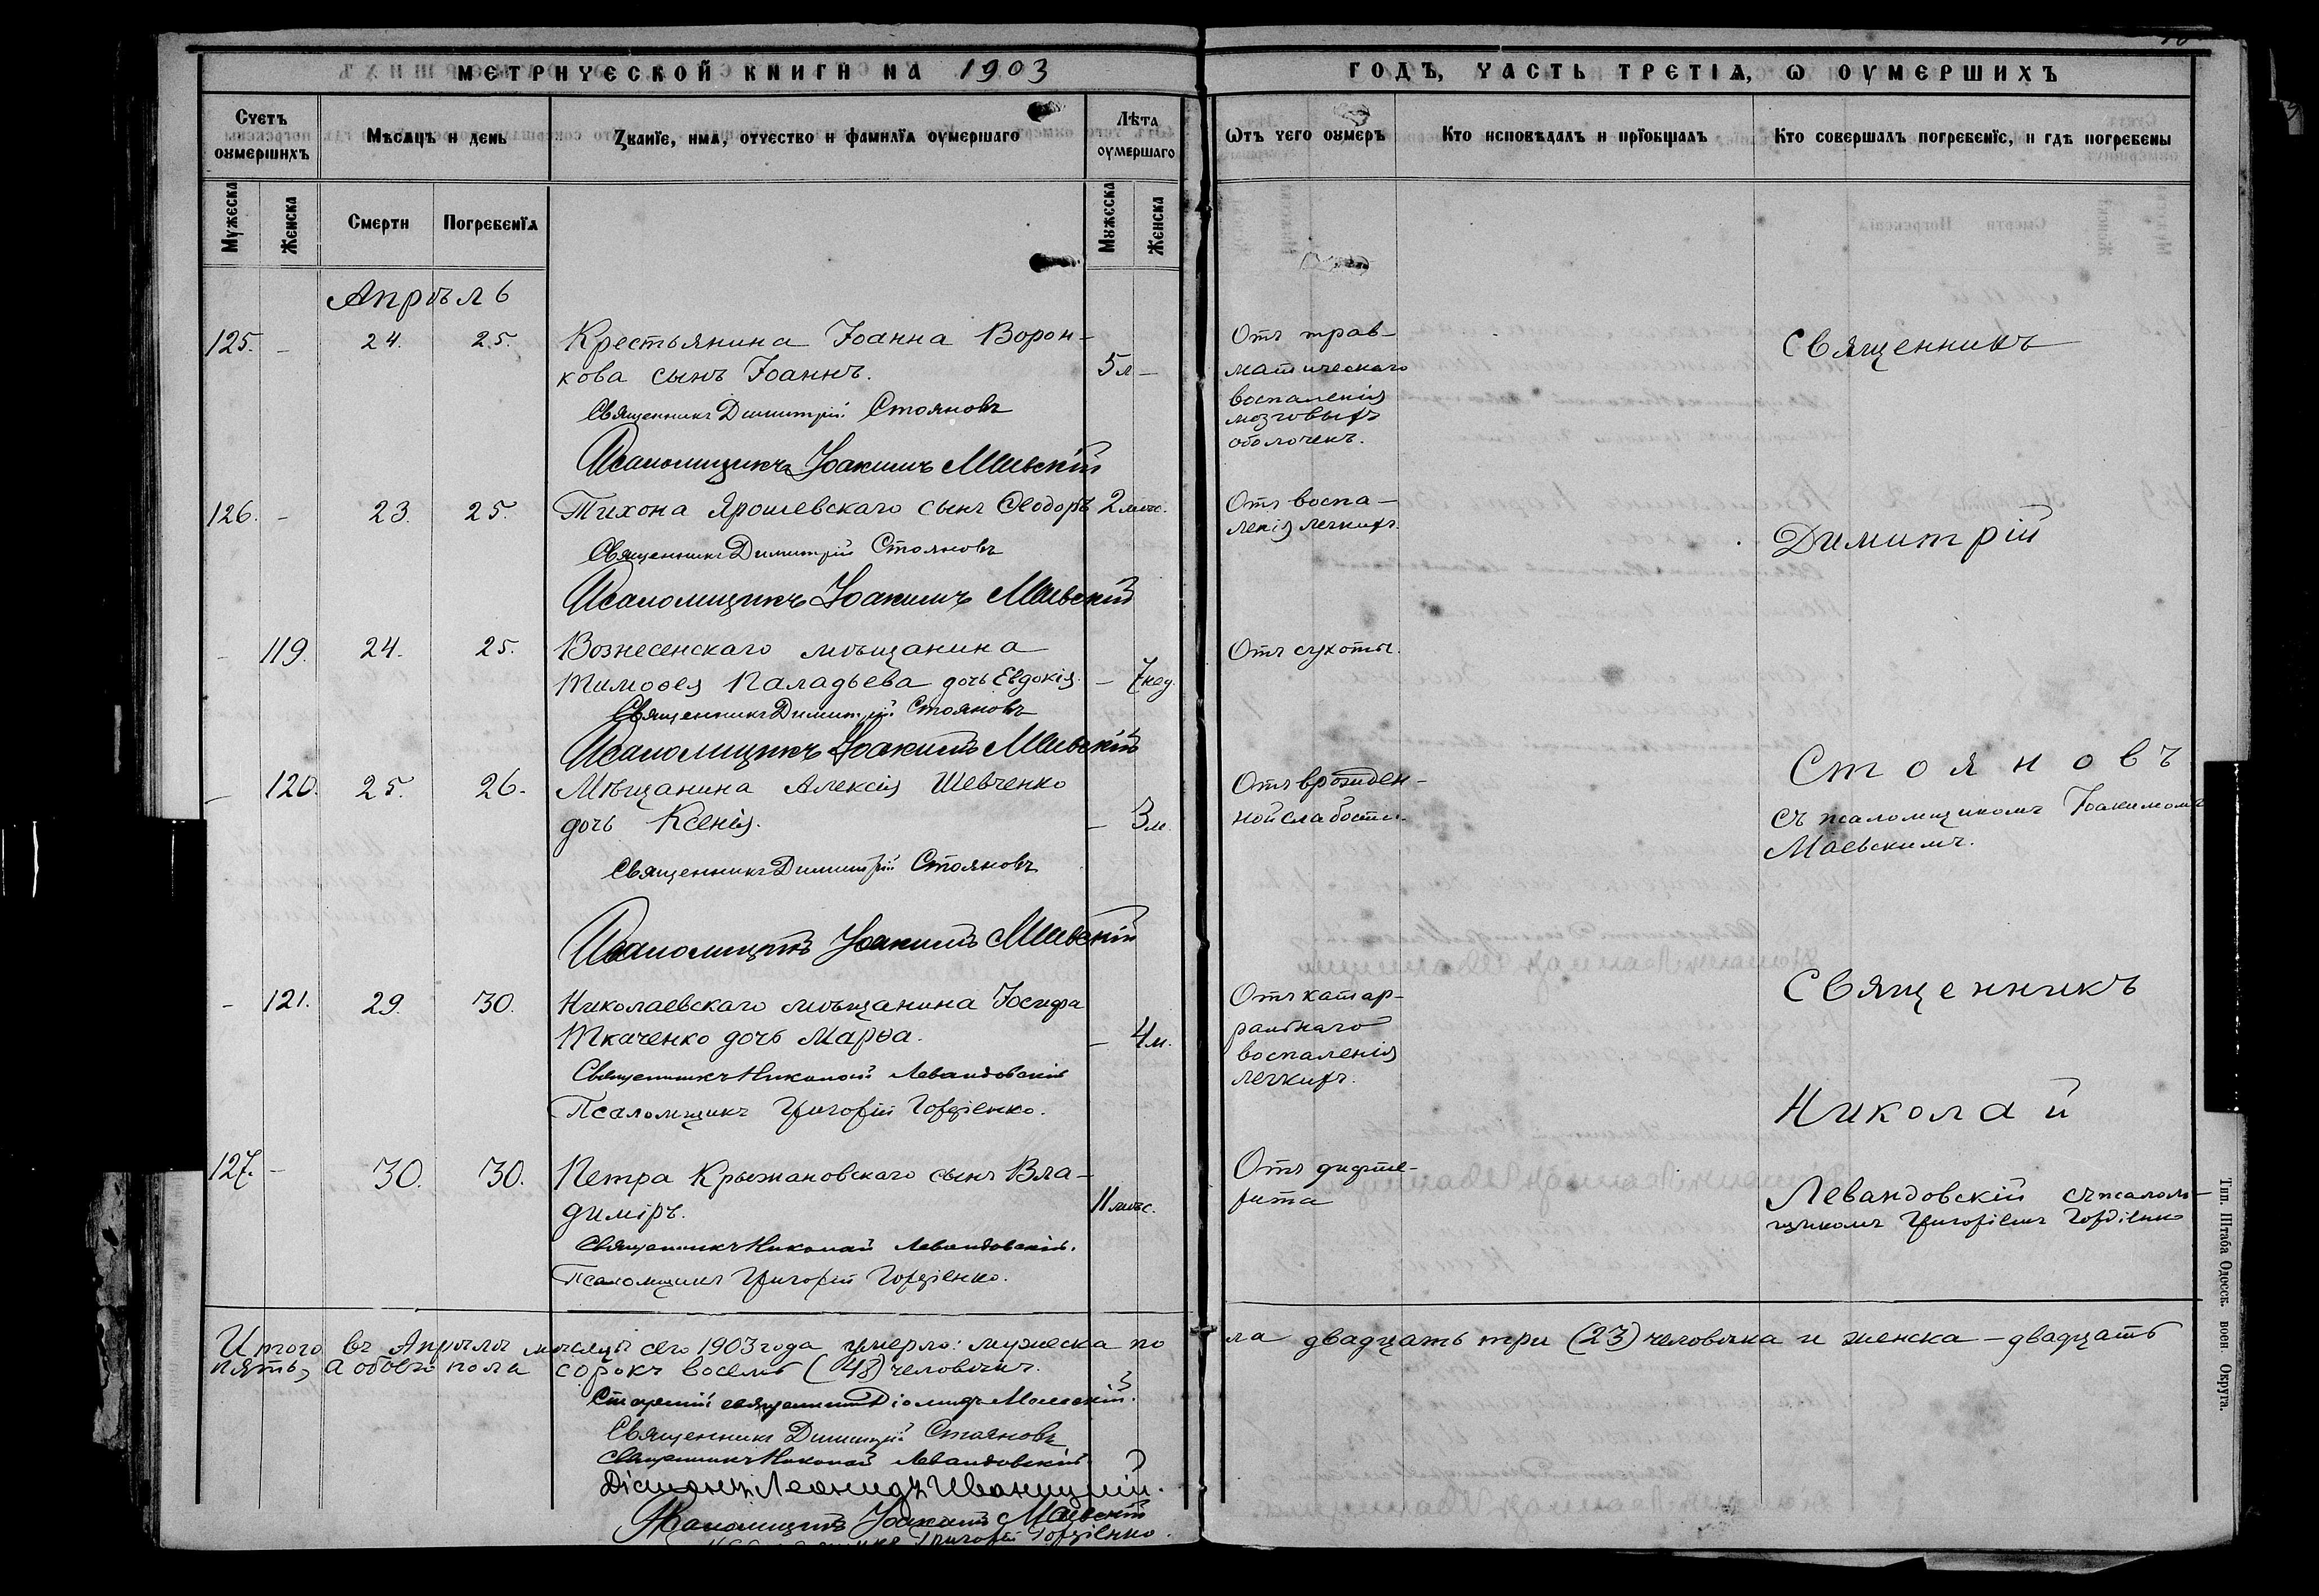 МЕТРИЧЕСКОЙ КНИГИ НА 1903
ГОДЪ, ЧАСТЬ ТРЕТІЯ, Ѡ ОУМЕРШИХЪ
Счетъ оумершихъ
Мѣсяцъ и день
Званїе, имя, отчество и фамилїя оумершаго
Лѣта оумершаго
Ѿтъ чего оумеръ
Кто исповѣдалъ и прїобщалъ
Кто совершалъ погребенїе, и гдѣ погребены
Мужеска
Женска
Смерти
Погребенїя
Мужеска
Женска
Апрѣль
125. - 24. 25. Крестьянина Іоанна Ворон-
кова сынъ Іоаннъ. 5 л -
Священникъ Димитрій Стояновъ
Псаломщикъ Іоакимъ Маевскій
Отъ трав-
матическаго
воспаленія
мозговыхъ
оболочекъ.
Священникъ
126. - 23. 25. Тихона Ярошевскаго сынъ Ѳеодоръ 2 мѣс.
Священникъ Димитрій Стояновъ
Псаломщикъ Іоакимъ Маевскій
Отъ воспа-
ленія легкихъ.
Димитрій
- 119. 24. 25. Вознесенскаго мѣщанина
Тимоѳея Паладьева дочь Евдокія. - 7 нед.
Священникъ Димитрій Стояновъ
Псаломщикъ Іоакимъ Маевскій
Отъ сухоты.
Стояновъ
съ псаломщикомъ Іоакимомъ
Маевскимъ.
- 120. 25. 26. Мѣщанина Алексія Шевченко
дочь Ксенія. - 3 м.
Священникъ Димитрій Стояновъ
Псаломщикъ Іоакимъ Маевскій
Отъ врожден-
ной слабости.
- 121. 29. 30. Николаевскаго мѣщанина Іосифа
Ткаченко дочь Марѳа. - 4 м.
Священникъ Николай Левандовскій
Псаломщикъ Григорій Гордіенко.
Отъ катар-
ральнаго
воспаленія
легкихъ.
Священникъ
Николай
127. - 30. 30. Петра Крыжановскаго сынъ Вла-
диміръ. 11 мѣс.
Священникъ Николай Левандовскій.
Псаломщикъ Григорій Гордіенко.
Отъ дифте-
рита
Левандовскій съ псалом-
щикомъ Григоріемъ Гордіенко
Итого въ Апрѣлѣ мѣсяцѣ сего 1903 года умерло: мужеска по
ла двадцать три (23) человѣка и женска - двадцать
пять, а обоего пола сорокъ восемь (48) человѣкъ.
Старшій священникъ Діомидъ Маевскій.
Священникъ Димитрій Стояновъ
Священникъ Николай Левандовскій
Діаконъ Леонидъ Иваницкій.
Псаломщикъ Іоакимъ Маевскій
Григорій Гордіенко.
Тип. Штаба Одесск. воен. Округа.